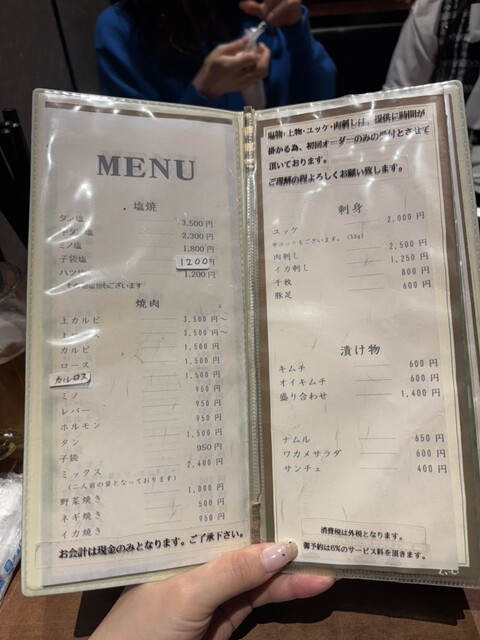 MENU
・塩焼
タン塩 3,500円
塩 2,300円
ミノ塩 1,800円
子袋塩 1200円
ハツ塩 1,200円
もございます
焼肉
上カルビ 3,500円～
3,500円～
カルビ 1,500円
ロース 1,500円
カルロス 1,500円
ミノ 950円
レバー 950円
ホルモン 950円
タン 1,500円
子袋 950円
ミックス 2,400円
(二人前の量となっております)
野菜焼き 1,000円
ネギ焼き 500円
イカ焼き 950円
お会計は現金のみとなります。ご了承下さい。
塩物・上物・ユッケ・肉刺しは、提供に時間が
掛かる為、初回オーダーのみの受付とさせて
頂いております。
ご理解の程よろしくお願い致します。
刺身
ユッケ 2,000円
もございます。(50g)
肉刺し 2,500円
イカ刺し 1,250円
千枚 800円
豚足 600円
漬け物
キムチ 600円
オイキムチ 600円
盛り合わせ 1,400円
ナムル 650円
ワカメサラダ 600円
サンチェ 400円
消費税は外税となります。
御予約は6%のサービス料を頂きます。